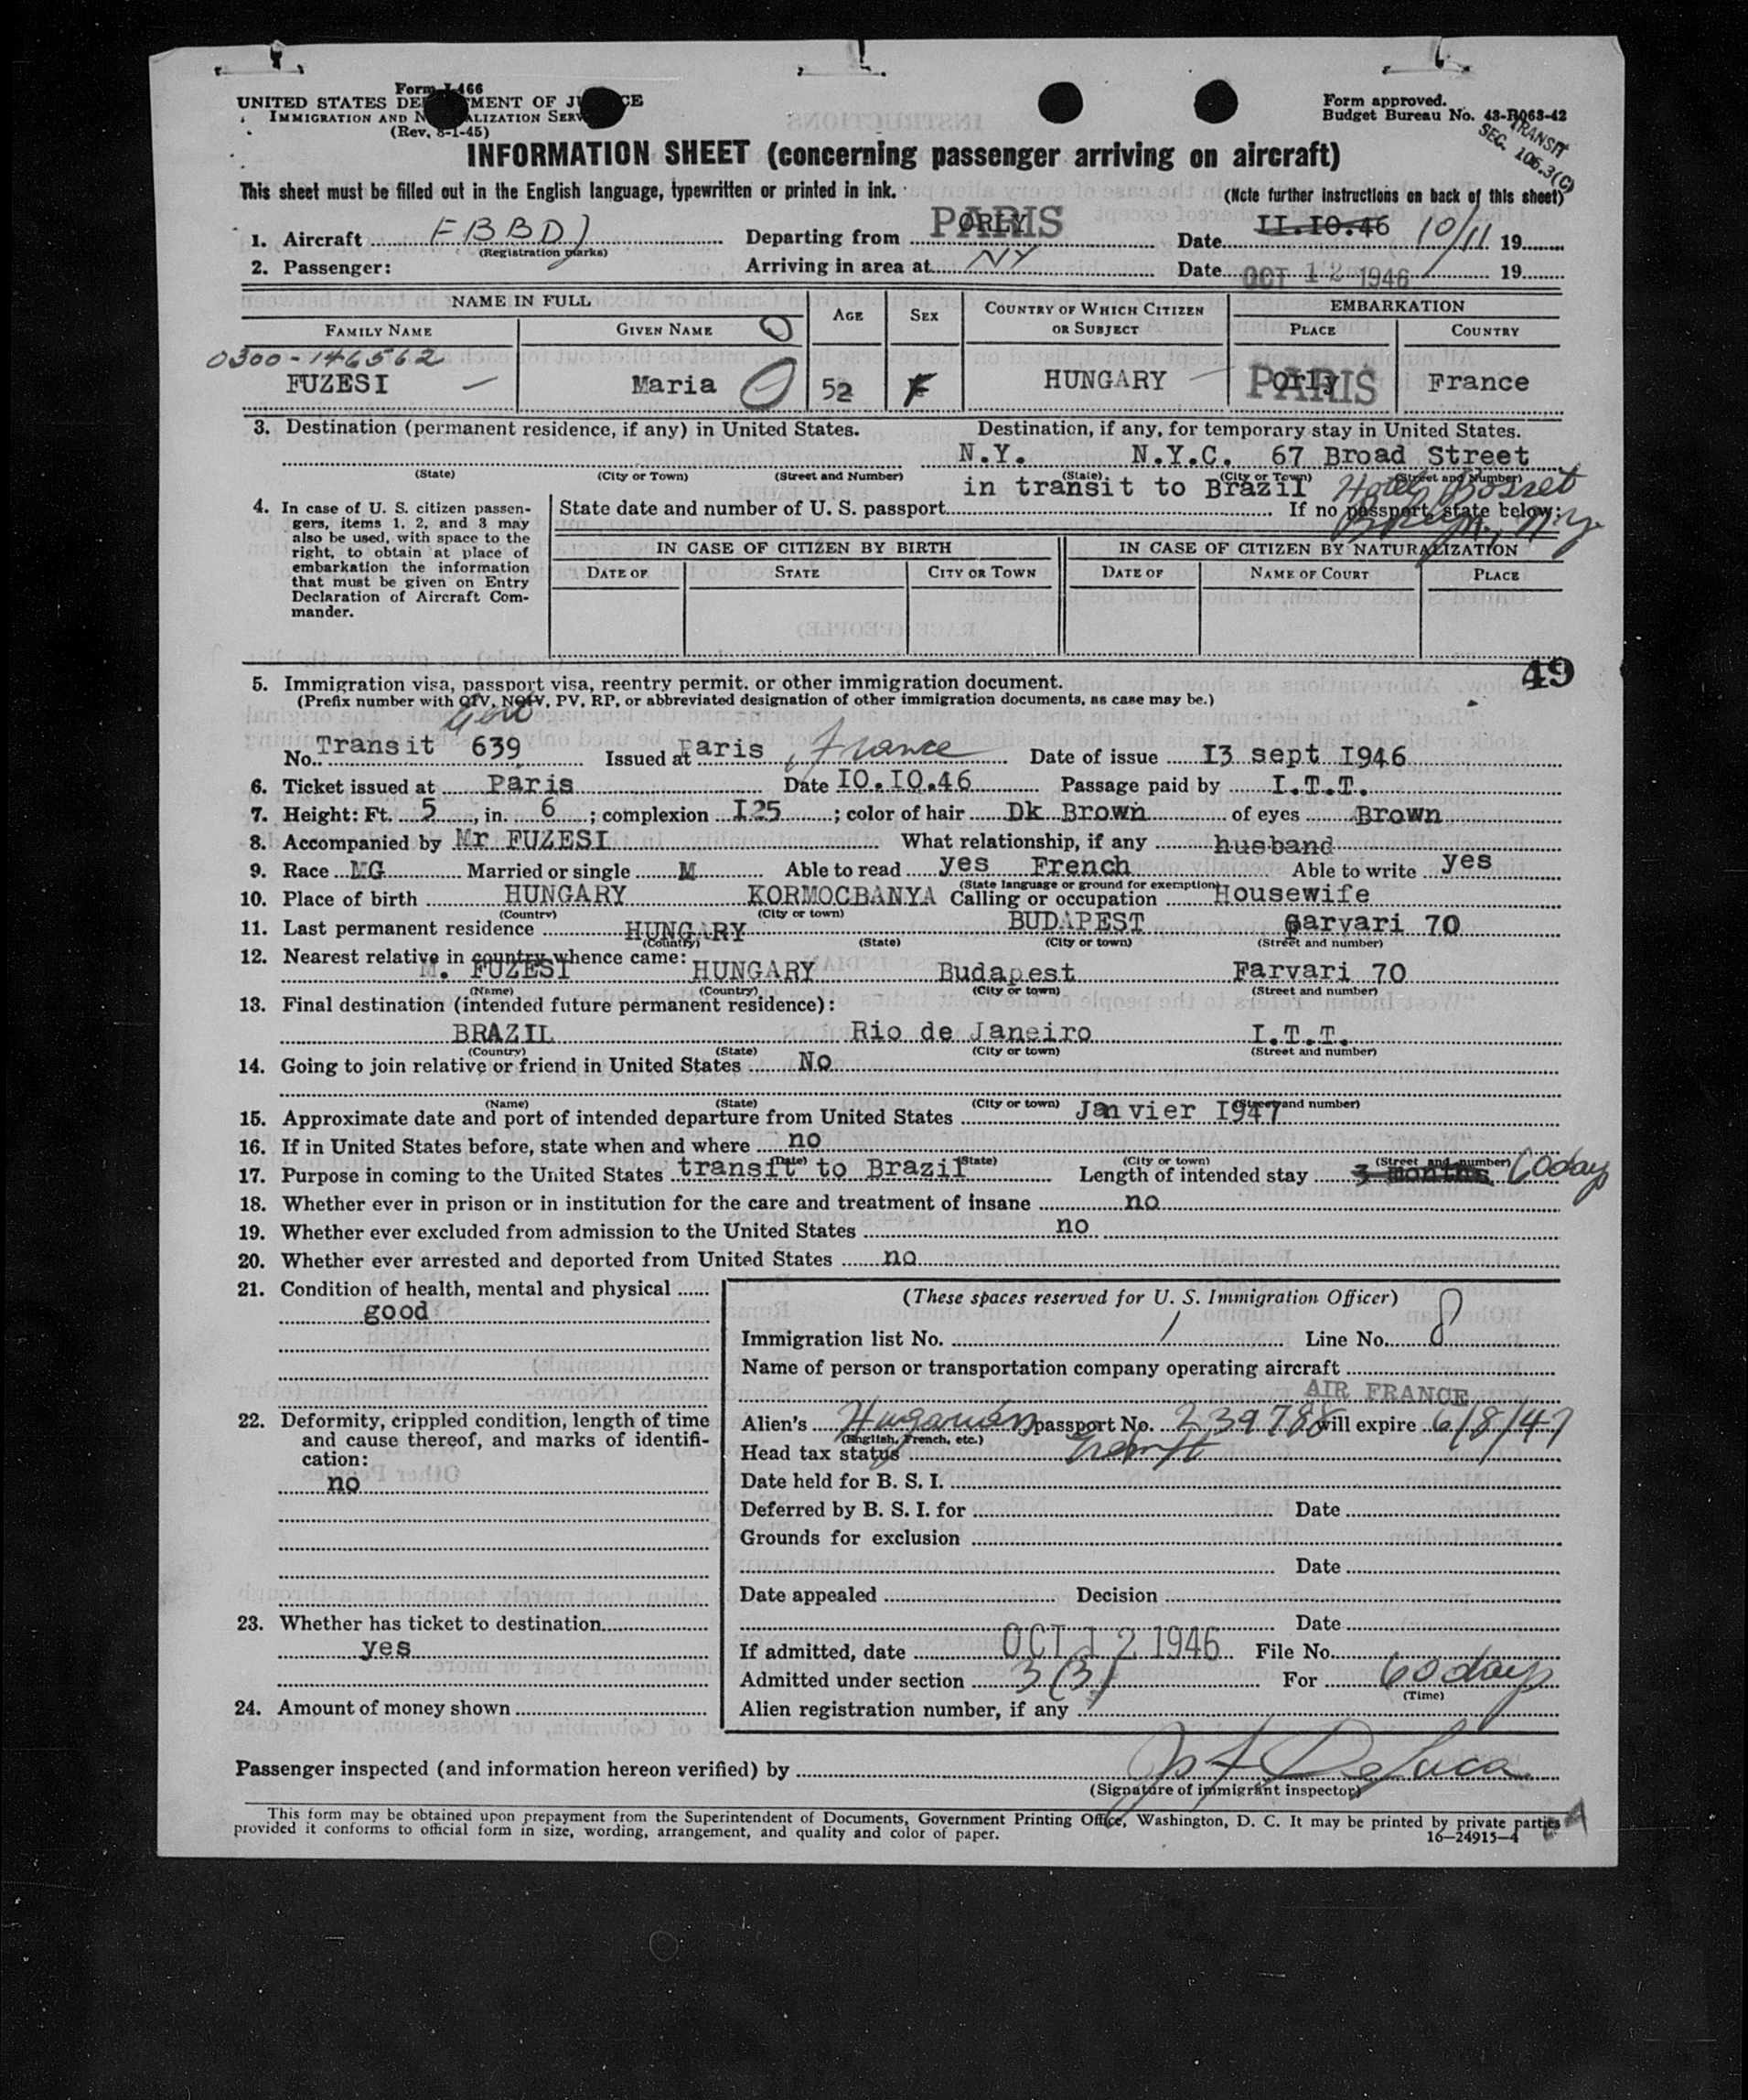 Form I-466
UNITED STATES DEPARTMENT OF JUSTICE
IMMIGRATION AND NATURALIZATION SERVICE
(Rev. 8-1-45)
Form approved.
Budget Bureau No. 43-R063-42
TRANSIT
SEC. 106.3(C)
INFORMATION SHEET (concerning passenger arriving on aircraft)
This sheet must be filled out in the English language, typewritten or printed in ink. (Note further instructions on back of this sheet)
1. Aircraft FBBDJ Departing from ORLY PARIS Date II.IO.46 10/11 19
(Registration marks)
2. Passenger: Arriving in area at NY Date OCT 12 1946 19
NAME IN FULL AGE SEX COUNTRY OF WHICH CITIZEN OR SUBJECT EMBARKATION
FAMILY NAME GIVEN NAME PLACE COUNTRY
0300-146562
FUZESI Maria 52 F HUNGARY Orly PARIS France
3. Destination (permanent residence, if any) in United States. Destination, if any, for temporary stay in United States.
N.Y. N.Y.C. 67 Broad Street
(State) (City or Town) (Street and Number) (State) (City or Town) (Street and Number)
in transit to Brazil Hotel Bosset
Bklyn, NY
4. In case of U. S. citizen passengers, items 1, 2, and 3 may also be used, with space to the right, to obtain at place of embarkation the information that must be given on Entry Declaration of Aircraft Commander.
State date and number of U. S. passport If no passport, state below:
IN CASE OF CITIZEN BY BIRTH IN CASE OF CITIZEN BY NATURALIZATION
DATE OF STATE CITY OR TOWN DATE OF NAME OF COURT PLACE
49
5. Immigration visa, passport visa, reentry permit, or other immigration document.
(Prefix number with QIV, NQIV, PV, RP, or abbreviated designation of other immigration documents, as case may be.)
No. Transit 639 Issued at Paris, France Date of issue I3 sept I946
6. Ticket issued at Paris Date IO.IO.46 Passage paid by I.T.T.
7. Height: Ft. 5, in. 6; complexion I25; color of hair Dk Brown of eyes Brown
8. Accompanied by Mr FUZESI What relationship, if any husband
9. Race MG Married or single M Able to read yes French Able to write yes
(State language or ground for exemption)
10. Place of birth HUNGARY KORMOCBANYA Calling or occupation Housewife
(Country) (City or town)
11. Last permanent residence HUNGARY BUDAPEST Farvari 70
(Country) (State) (City or town) (Street and number)
12. Nearest relative in country whence came:
M. FUZESI HUNGARY Budapest Farvari 70
(Name) (Country) (City or town) (Street and number)
13. Final destination (intended future permanent residence):
BRAZIL Rio de Janeiro I.T.T.
(Country) (State) (City or town) (Street and number)
14. Going to join relative or friend in United States No
(Name) (State) (City or town) (Street and number)
15. Approximate date and port of intended departure from United States Janvier I947
16. If in United States before, state when and where no
(Date) (State) (City or town) (Street and number)
17. Purpose in coming to the United States transit to Brazil Length of intended stay 3 months 60 days
18. Whether ever in prison or in institution for the care and treatment of insane no
19. Whether ever excluded from admission to the United States no
20. Whether ever arrested and deported from United States no
21. Condition of health, mental and physical
good
22. Deformity, crippled condition, length of time and cause thereof, and marks of identification:
no
23. Whether has ticket to destination
yes
24. Amount of money shown
(These spaces reserved for U. S. Immigration Officer)
Immigration list No. 1 Line No. 8
Name of person or transportation company operating aircraft
AIR FRANCE
Alien's Hungarian passport No. 239788 will expire 6/8/47
(English, French, etc.)
Head tax status Exempt
Date held for B. S. I.
Deferred by B. S. I. for Date
Grounds for exclusion
Date
Date appealed Decision
Date
If admitted, date OCT 12 1946 File No.
Admitted under section 3(3) For 60 days
(Time)
Alien registration number, if any
Passenger inspected (and information hereon verified) by
(Signature of immigrant inspector)
This form may be obtained upon prepayment from the Superintendent of Documents, Government Printing Office, Washington, D. C. It may be printed by private parties
provided it conforms to official form in size, wording, arrangement, and quality and color of paper.
16—24915-4